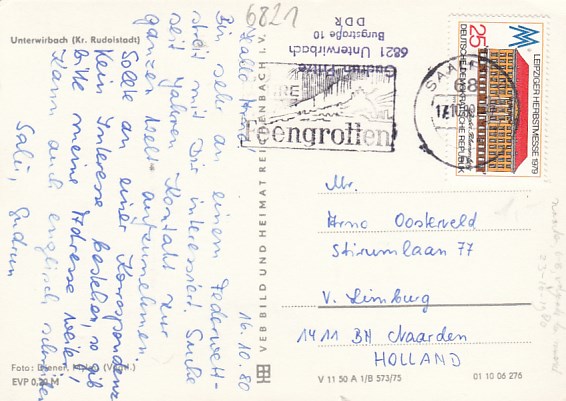 6821
Unterwirbach (Kr. Rudolstadt)
Hallo
Bin sehr an einem Federwett-
streit mit Dir interessiert. Suche
seit Jahren Kontakt zur
ganzen Welt aufzunehmen.
Sollte an einer Korrespondenz
Kein Interesse bestehen, so gib
bitte meine Adresse weiter!
Kann auch englisch schreiben
Salü, Gudrun
16.10.80
Foto: Darner,
EVP 0,20 M
VEB BILD UND HEIMAT REICHENBACH I.V.
Gudrun
Burgstraße 10
6821 Unterwirbach
DDR
Feengrotten
SAAL
68
LEIPZIGER HERBSTMESSE 1979
DEUTSCHE DEMOKRATISCHE REPUBLIK
25
Mr.
Arno Oosterveld
Stirumlaan 77
v. Limburg
1411 BH Naarden
HOLLAND
V 11 50 A 1/B 573/75
01 10 06 276